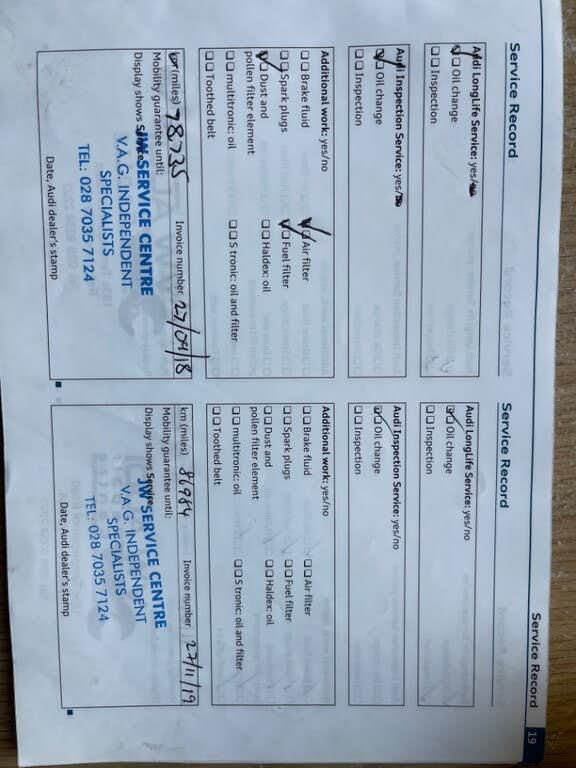 Service Record 19
Service Record
Audi LongLife Service: yes/no
Oil change
Inspection
Audi Inspection Service: yes/no
Oil change
Inspection
Additional work: yes/no
Brake fluid
Air filter
Spark plugs
Fuel filter
Dust and
pollen filter element
Haldex: oil
multitronic: oil
S tronic: oil and filter
Toothed belt
km (miles) 78735
Invoice number 27/04/18
Mobility guarantee until:
Display shows
JW SERVICE CENTRE
V.A.G. INDEPENDENT
SPECIALISTS
TEL: 028 7035 7124
Date, Audi dealer's stamp
Service Record
Audi LongLife Service: yes/no
Oil change
Inspection
Audi Inspection Service: yes/no
Oil change
Inspection
Additional work: yes/no
Brake fluid
Air filter
Spark plugs
Fuel filter
Dust and
pollen filter element
Haldex: oil
multitronic: oil
S tronic: oil and filter
Toothed belt
km (miles) 86984
Invoice number 27/11/19
Mobility guarantee until:
Display shows Service
JW SERVICE CENTRE
V.A.G. INDEPENDENT
SPECIALISTS
TEL: 028 7035 7124
Date, Audi dealer's stamp